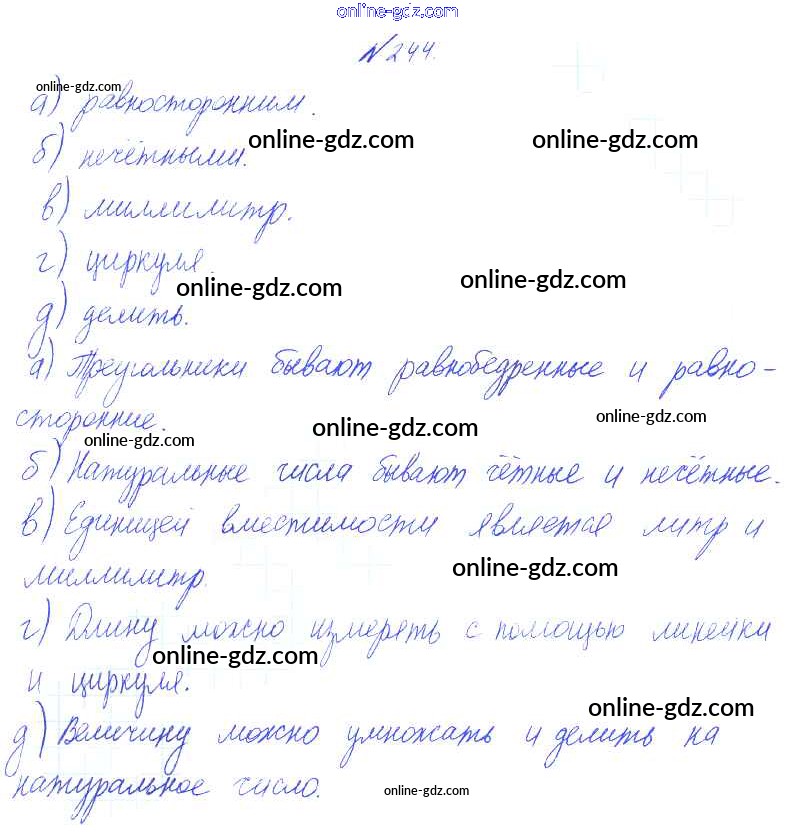 online-gdz.com
№244.
online-gdz.com
а) равносторонним.
online-gdz.com online-gdz.com
б) нечётными.
в) миллилитр.
г) циркуля.
online-gdz.com online-gdz.com
д) делить.
а) Треугольники бывают равнобедренные и равно-
сторонние.
online-gdz.com online-gdz.com online-gdz.com
б) Натуральные числа бывают чётные и нечётные.
в) Единицей вместимости является литр и
миллилитр.
online-gdz.com
г) Длину можно измерять с помощью линейки
online-gdz.com
и циркуля.
online-gdz.com
д) Величину можно умножать и делить на
натуральное число.
online-gdz.com